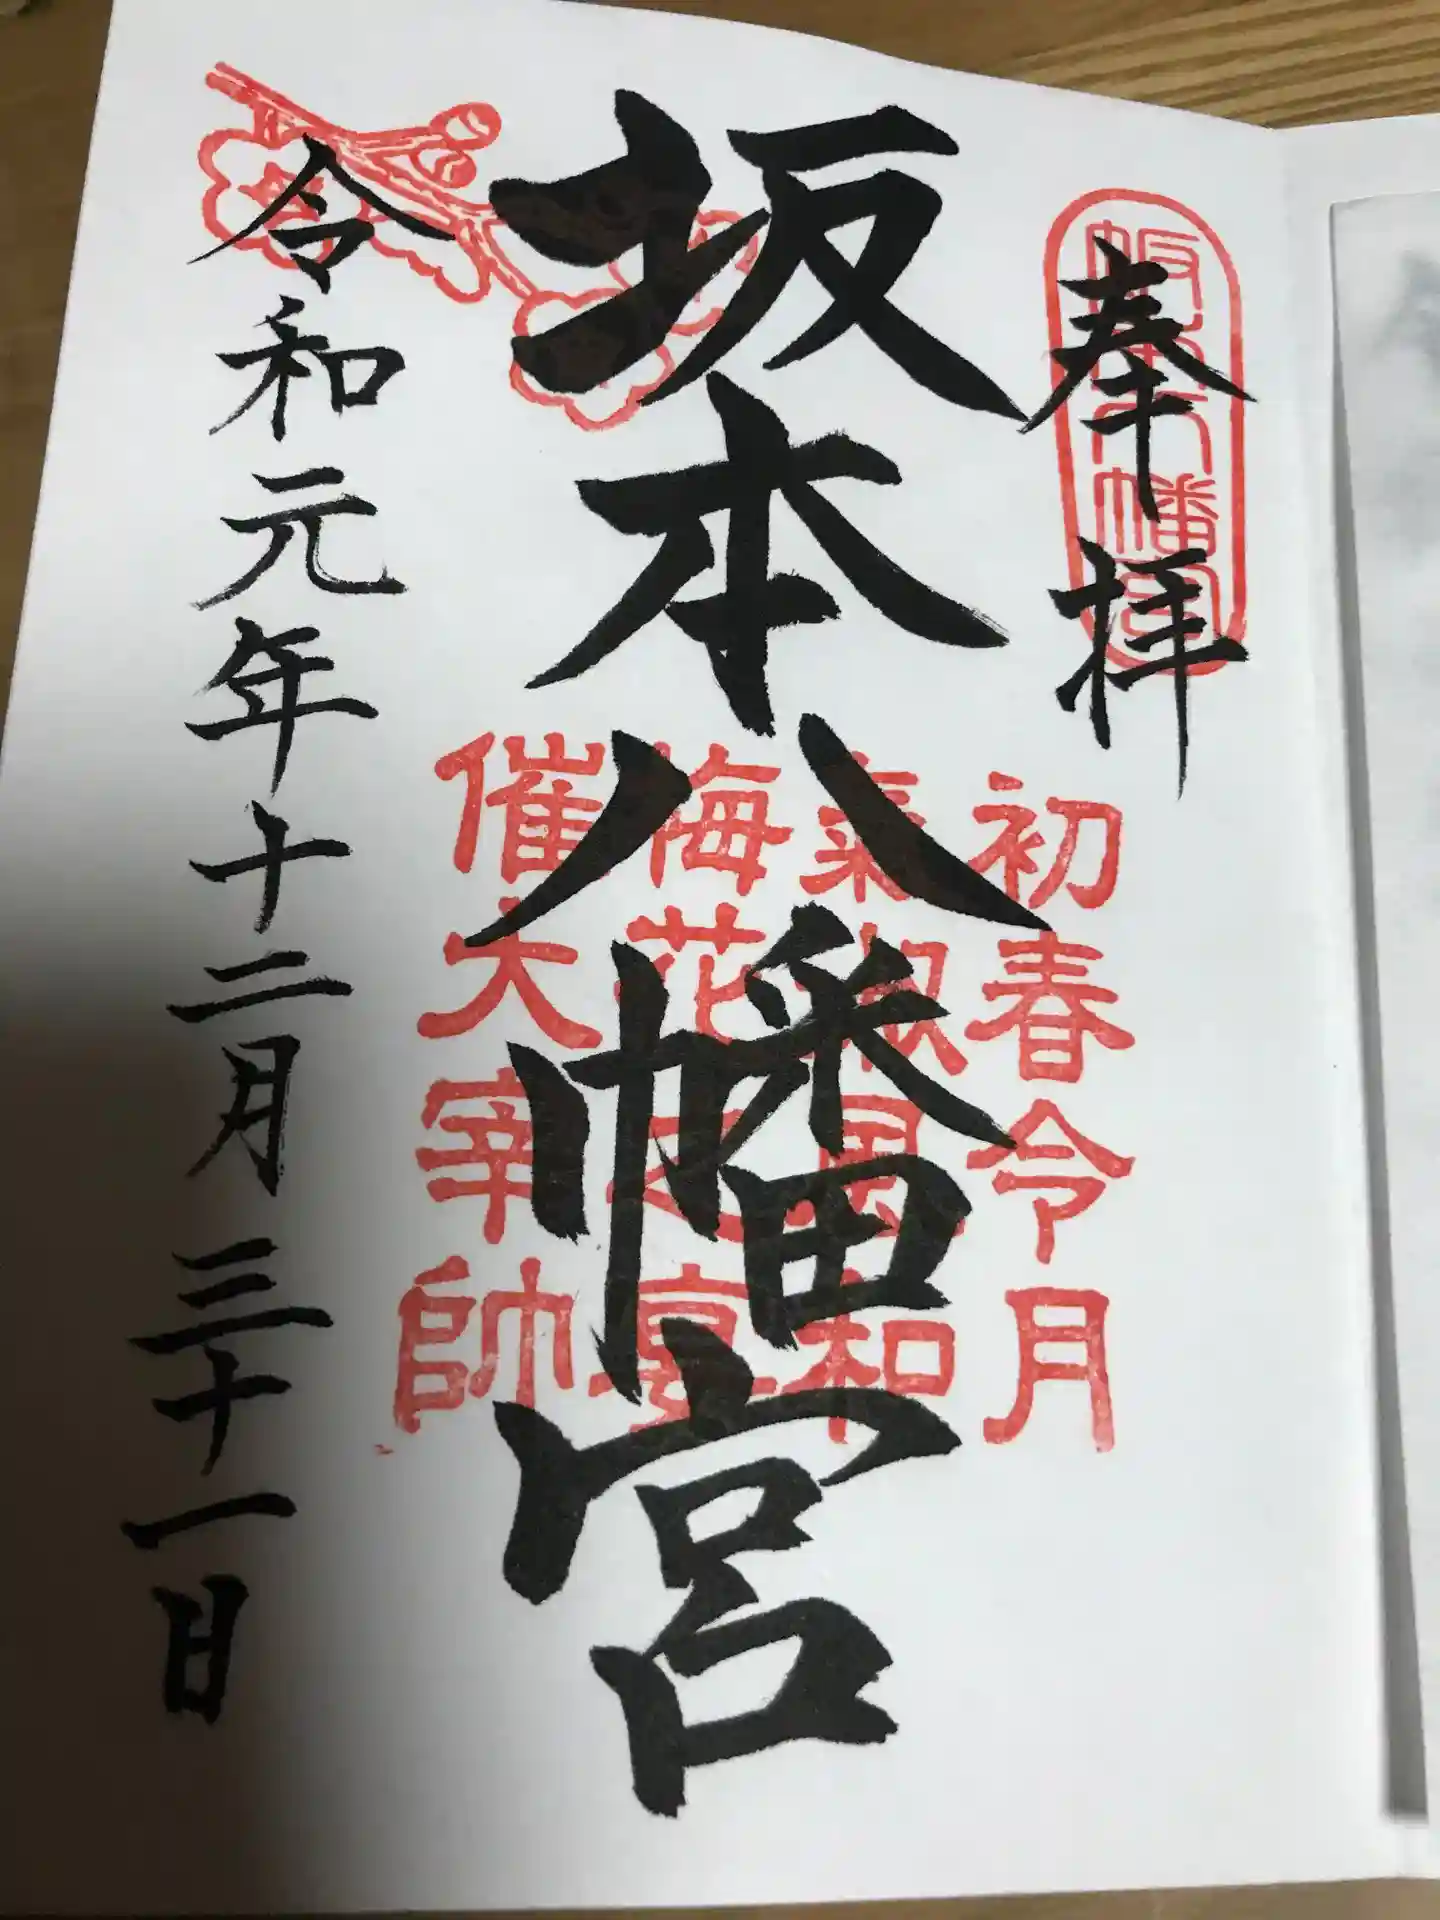 奉拝
坂本八幡宮
坂本八幡宮
初春令月
氣淑風和
梅花之宴
催大宰帥
令和元年十二月三十一日